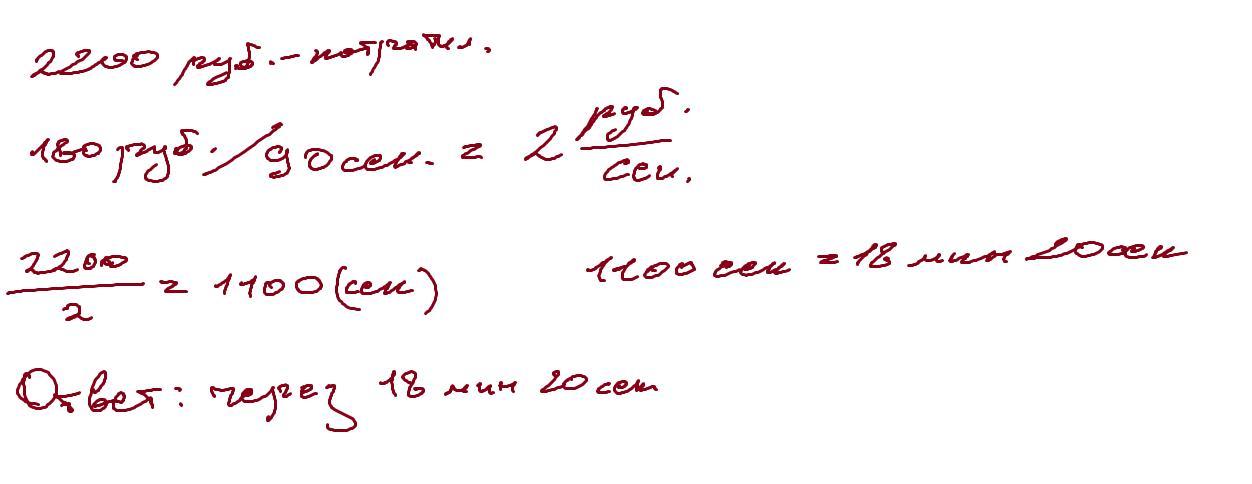 2200 руб. - потратил.
180 руб. / 90 сек. = 2 руб. / сек.
2200 / 2 = 1100 (сек) 1100 сек = 18 мин 20 сек
Ответ: через 18 мин 20 сек